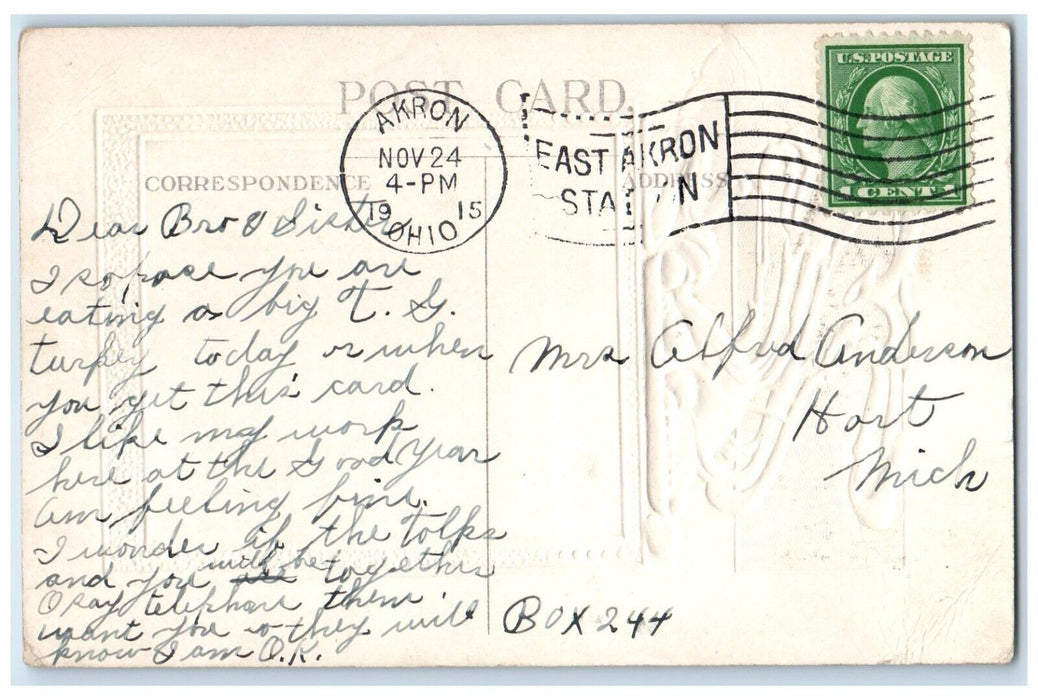 POST CARD.
U.S. POSTAGE
1 CENT 1
AKRON
NOV 24
4-PM
1915
OHIO
EAST AKRON
STA N
CORRESPONDENCE
ADDRESS
Dear Bro & Sister
I sopose you are
eating a big T. G.
turkey today or when
you get this card.
I like my work
here at the Good Year
am feeling fine.
I wonder if the folks
and you will be together
O say telephone them
want you so they will
know I am O.K.
Mrs Alfred Anderson
Hart
Mich
BOX 244